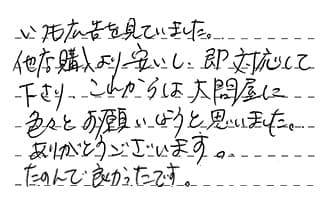 いつも広告を見ていました。
他店購入より安いし、即対応して
下さり、これからは大問屋に
色々とお願いしようと思いました。
ありがとうございます。
たのんで良かったです。